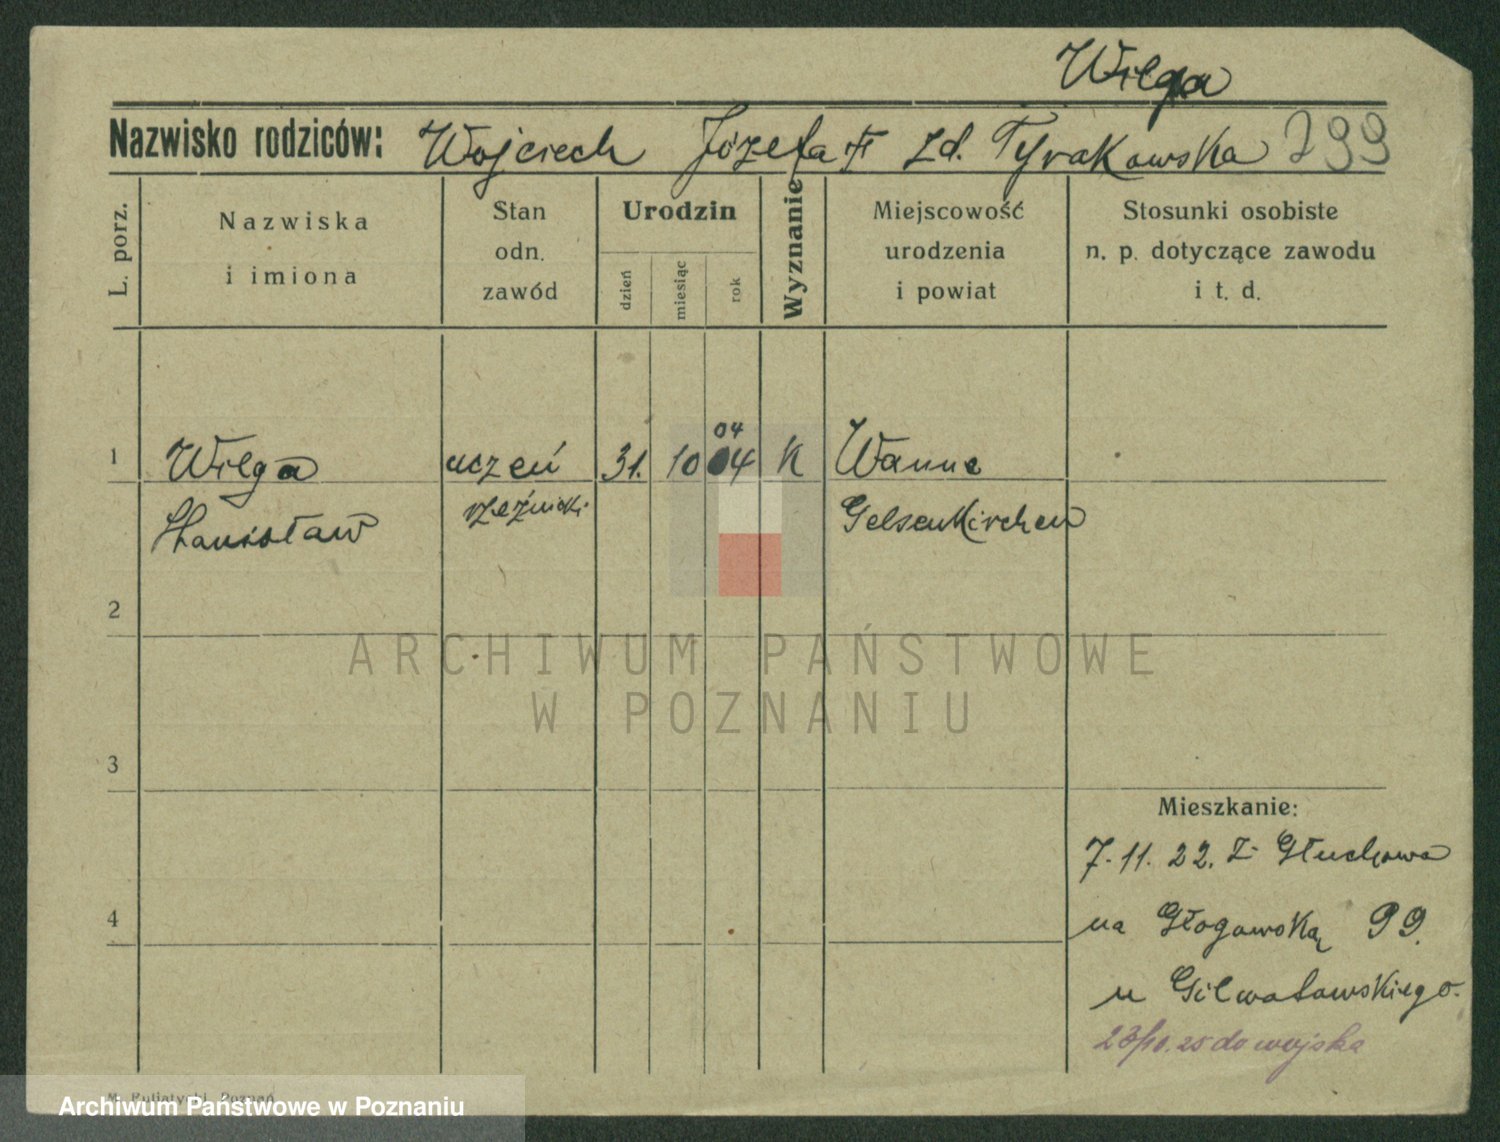 Wilga
Nazwisko rodziców: Wojciech Józefa zd. Tyrakowska 299
L. porz.
Nazwiska
i imiona
Stan
odn.
zawód
Urodzin
dzień
miesiąc
rok
Wyznanie
Miejscowość
urodzenia
i powiat
Stosunki osobiste
n. p. dotyczące zawodu
i t. d.
04
1 Wilga uczeń 31. 10 04 K Wanne
Stanisław rzeźnicki Gelsenkirchen
2
ARCHIWUM PAŃSTWOWE
W POZNANIU
3
Mieszkanie:
7.11.22. z Głuchowa
4
na Głogowską 99.
u Gilwatowskiego.
23/10.25 do wojska
Poznań
Archiwum Państwowe w Poznaniu